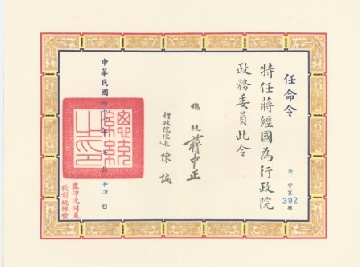 任命令
特任蔣經國為行政院
政務委員此令
總統 蔣中正
行政院院長 陳誠
中華民國
總統之印
392